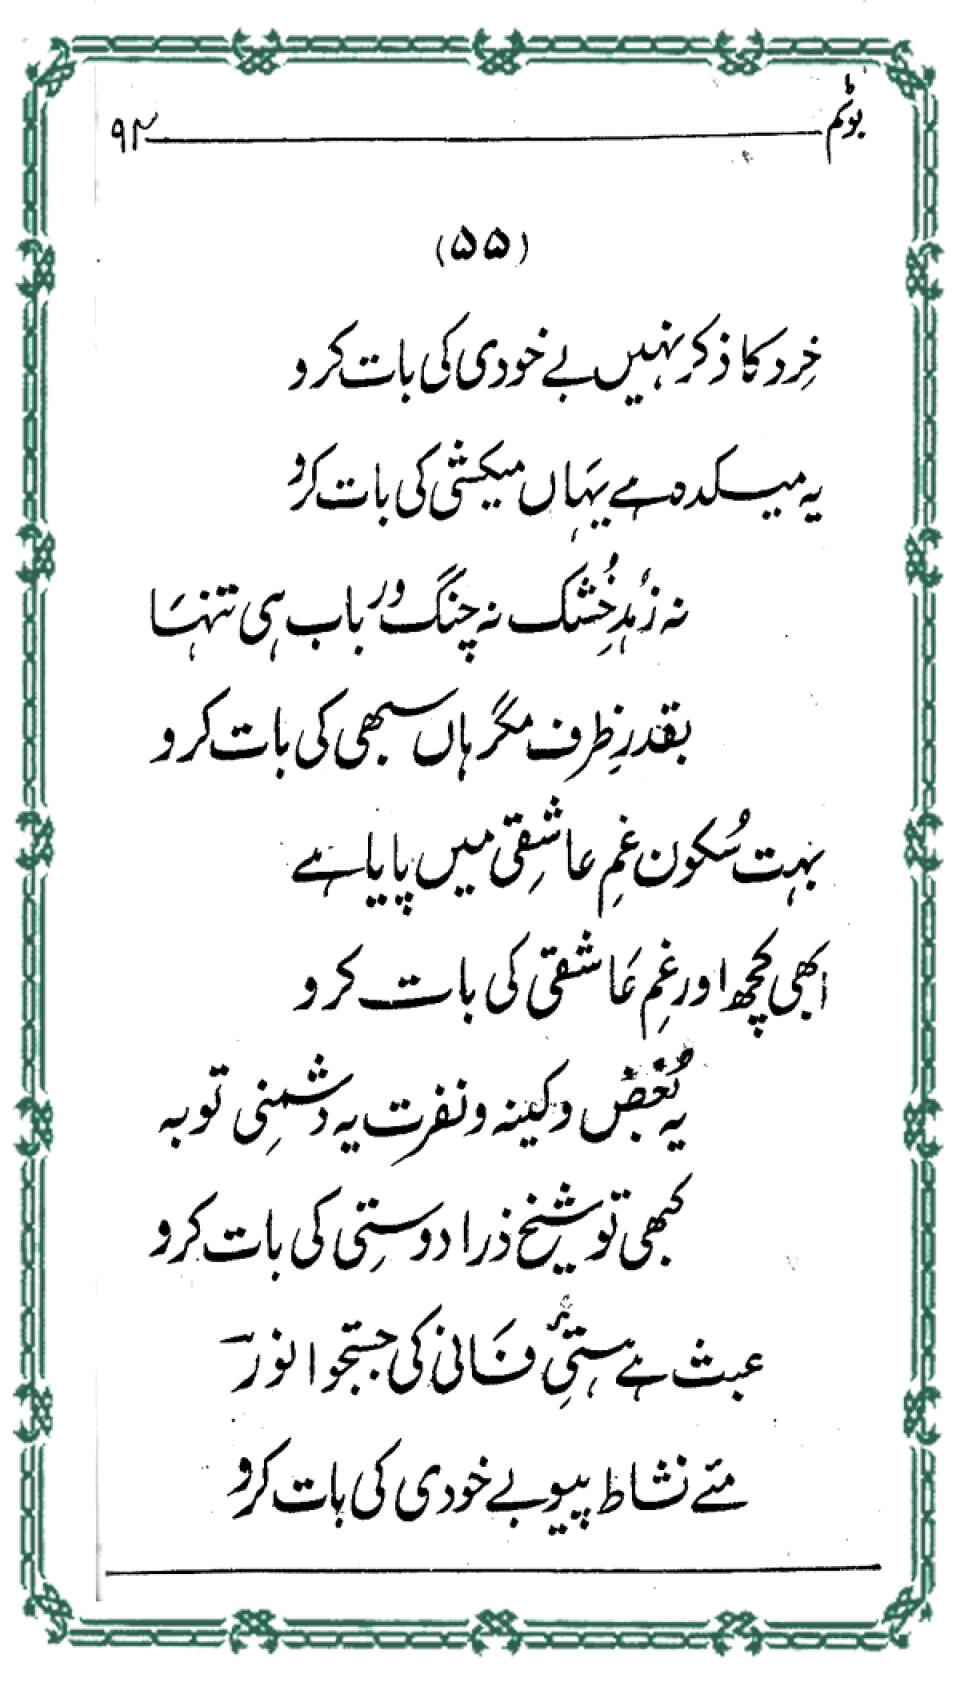 بوٹم ۹۲
(۵۵)
خِرد کا ذکر نہیں بے خودی کی بات کرو
یہ میکدہ ہے یہاں میکشی کی بات کرو
نہ زُہدِ خُشک نہ چنگ و رباب ہی تنہا
بقدرِ ظرف مگر ہاں سبھی کی بات کرو
بہت سُکون غمِ عاشِقی میں پایا ہے
ابھی کچھ اور غمِ عَاشقی کی بات کرو
یہ بُغض و کینہ و نفرت یہ دشمنِی توبہ
کبھی تو شیخ ذرا دوستِی کی بات کرو
عبث ہے ہستیِٔ فَانی کی جستجو انورؔ
مئے نشاط پیو بے خودی کی بات کرو